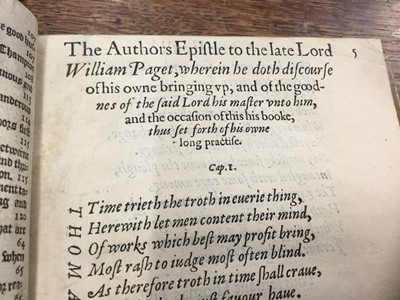 The Authors Epiſtle to the late Lord
5
William Paget, wherein he doth diſcourſe
of his owne bringing vp, and of the good-
nes of the ſaid Lord his maſter vnto him,
and the occaſion of this his booke,
thus ſet forth of his owne
long practiſe.
Cap. 1.
Time trieth the troth in euerie thing,
Herewith let men content their mind,
Of works which beſt may profit bring,
Moſt raſh to iudge moſt often blind.
As therefore troth in time ſhall craue,
fauour haue.
THOMA
107
109
115
64
65